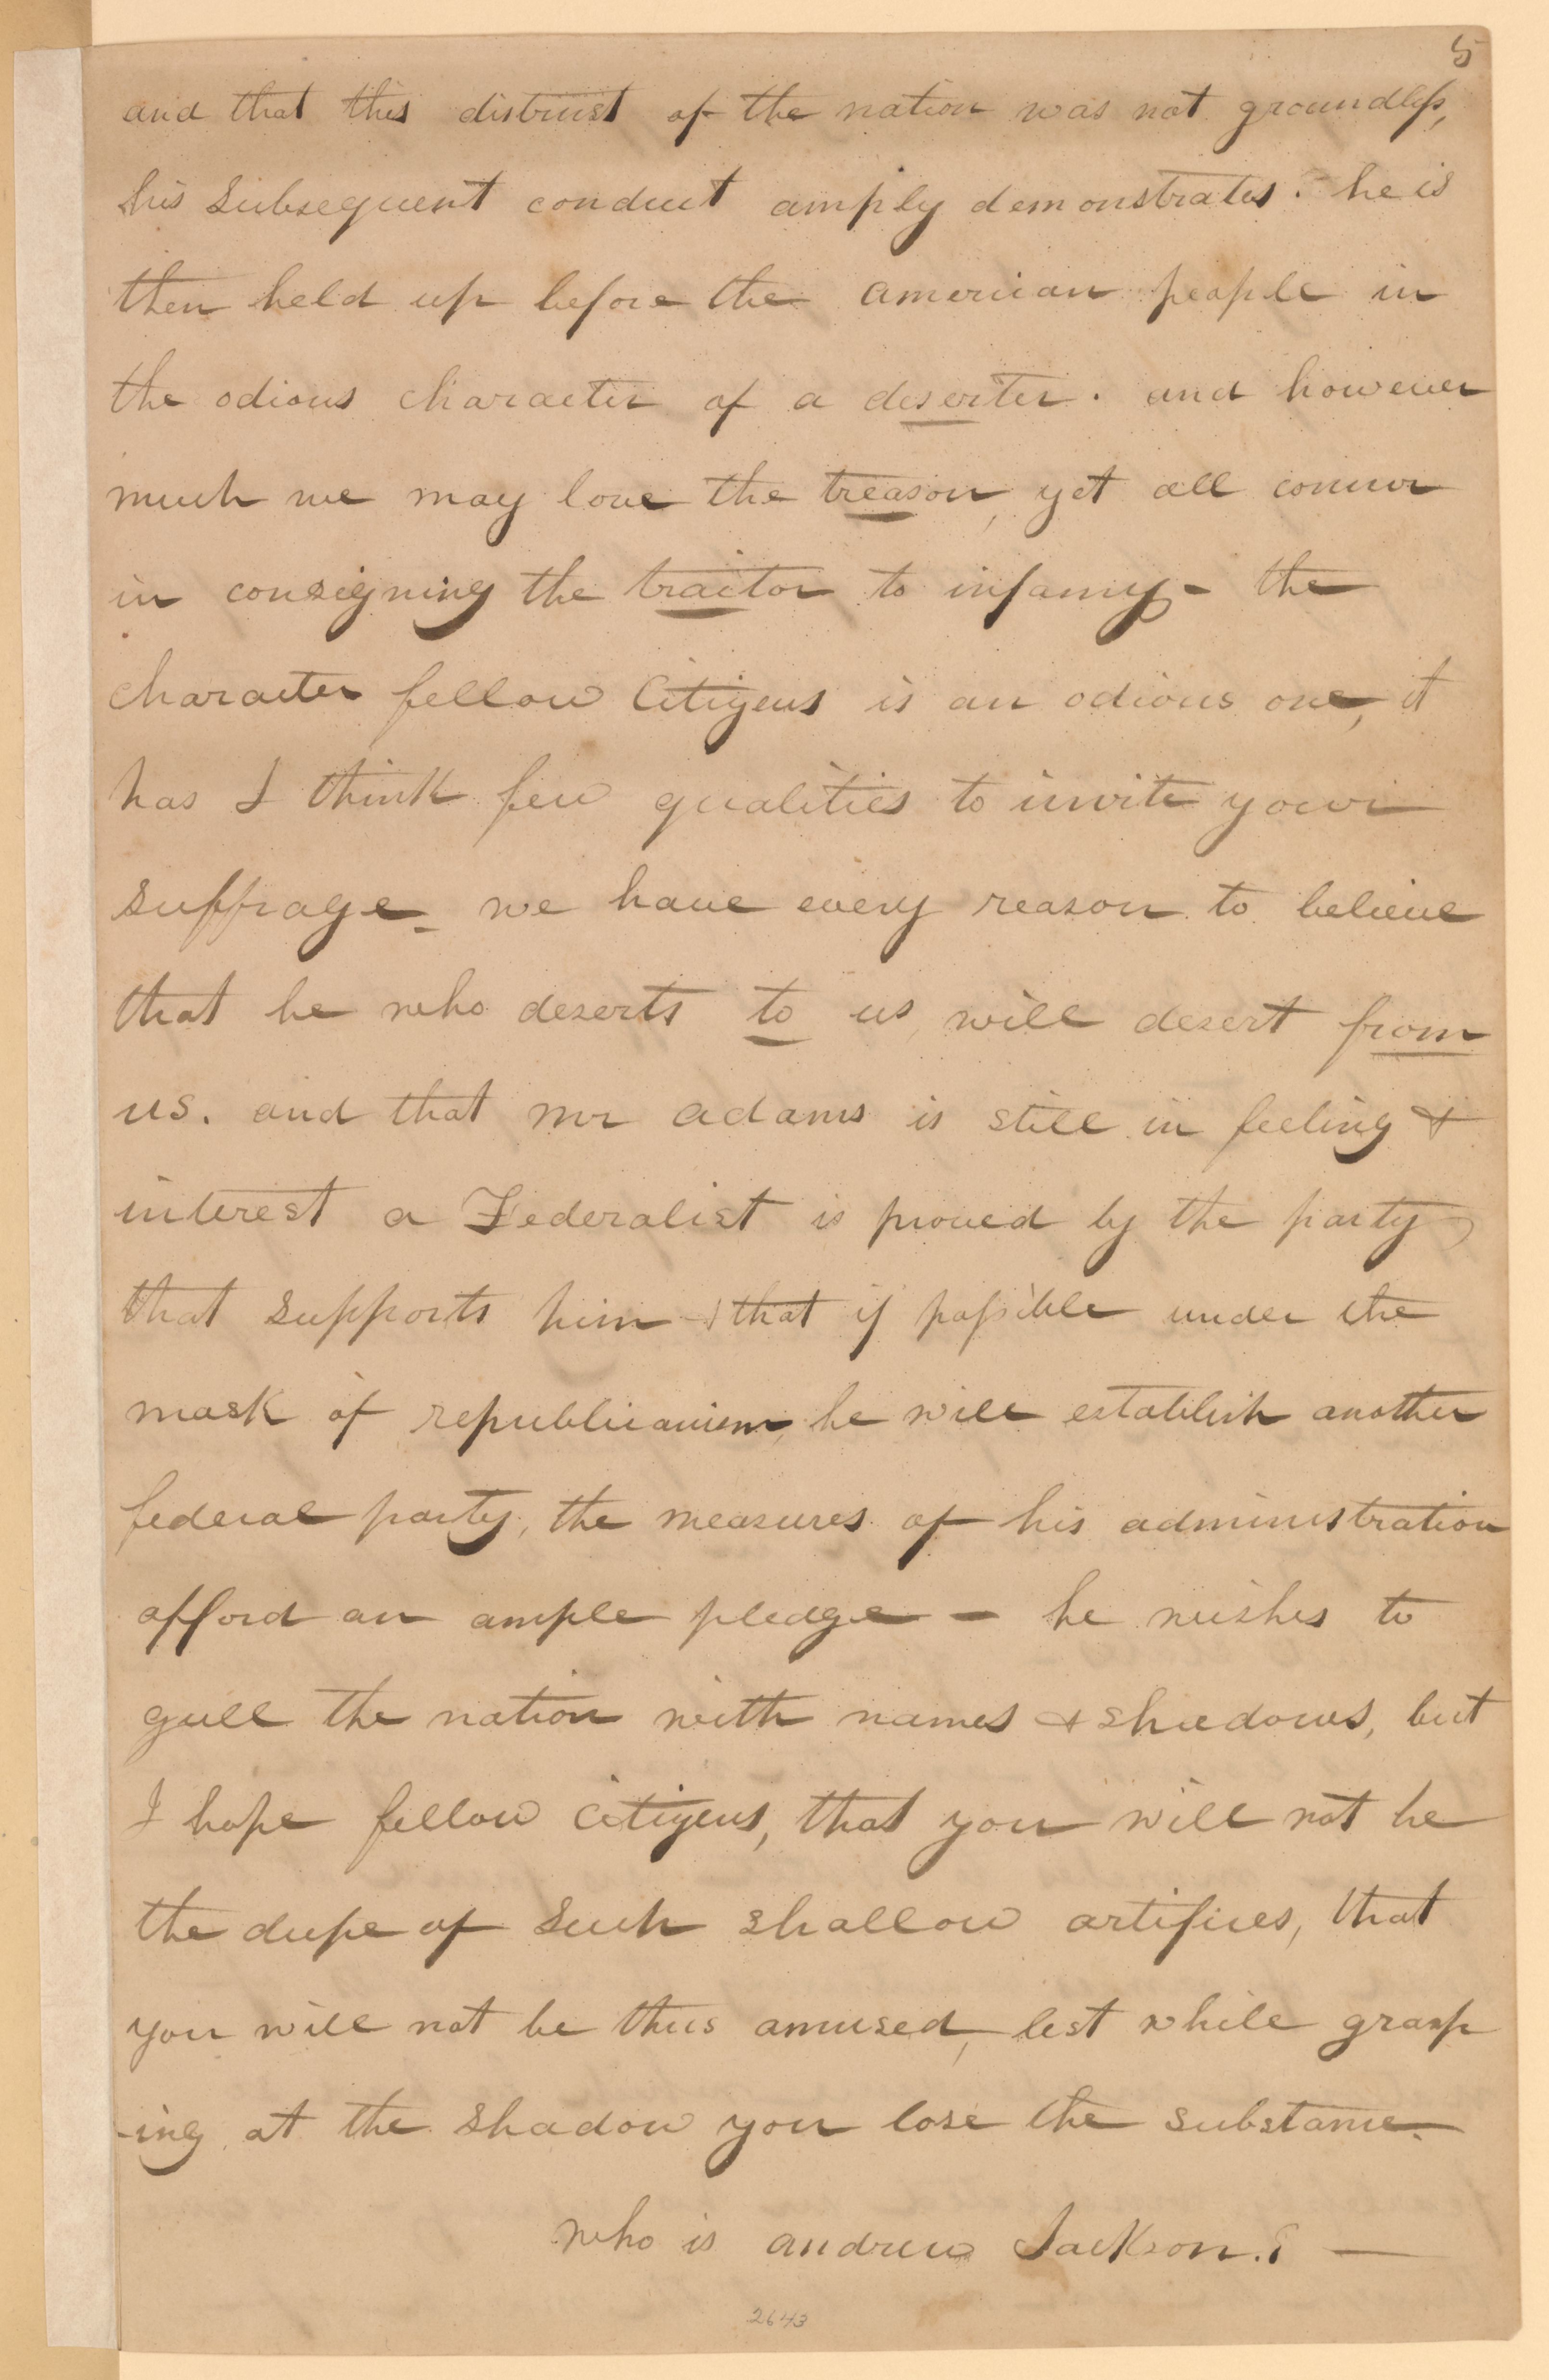 5
and that this distrust of the nation was not groundless,
his subsequent conduct amply demonstrates. he is
then held up before the american people in
the odious character of a deserter. and however
much we may love the treason, yet all concur
in consigning the traitor to infamy - the
character fellow Citizens is an odious one, it
has I think few qualities to invite your
suffrage - we have every reason to believe
that he who deserts to us, will desert from
us. and that mr adams is still in feeling &
interest a Federalist is proved by the party
that supports him & that if possible under the
mask of republicanism, he will establish another
federal party, the measures of his administration
afford an ample pledge - he wishes to
gull the nation with names & shadows, but
I hope fellow citizens, that you will not be
the dupe of such shallow artifices, that
you will not be thus amused, lest while grasp
-ing at the shadow you lose the substance.
who is andrew Jackson.? —
2643